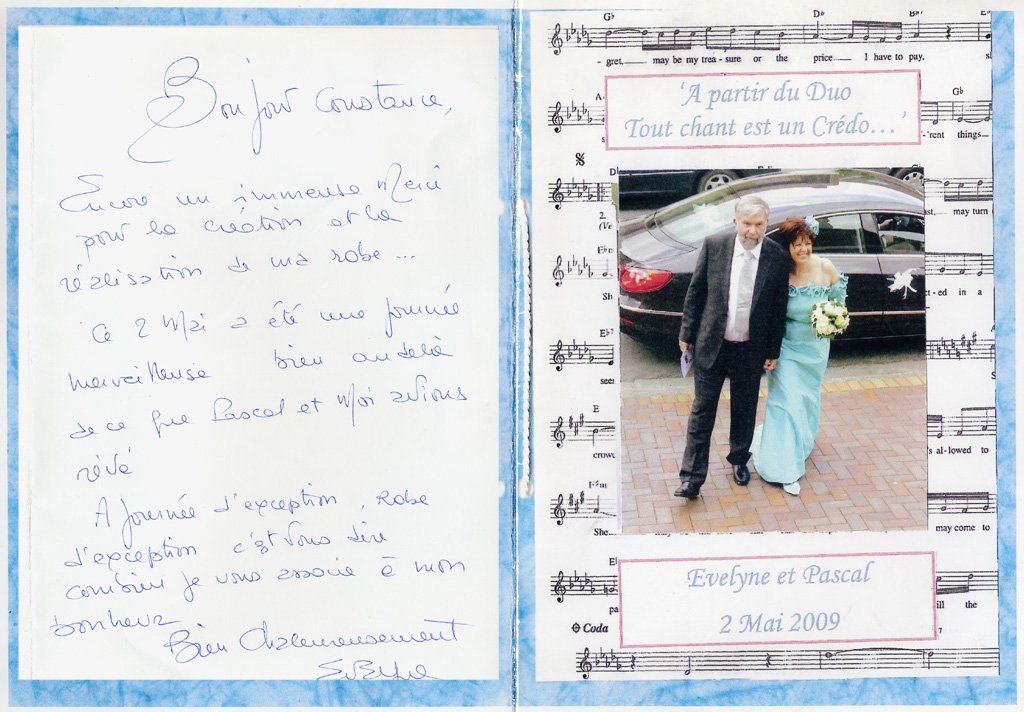 Bonjour Constance,
Encore un immense Merci
pour la création et la
réalisation de ma robe...
Ce 2 Mai a été une journée
merveilleuse bien au delà
de ce que Pascal et Moi avions
rêvé
A journée d'exception, robe
d'exception c'est vous dire
combien je vous associe à mon
bonheur
Bien Chaleureusement
Gb Db Bb
- gret, may be my trea - sure or the price I have to pay,
'A partir du Duo
Tout chant est un Crédo...'
A
Gb
-'rent things
2.
may turn
Sh
ct - ed in a
Eb7
seen
E
crowd
's al - lowed to
She
may come to
Evelyne et Pascal
2 Mai 2009
pa
ill the
Coda